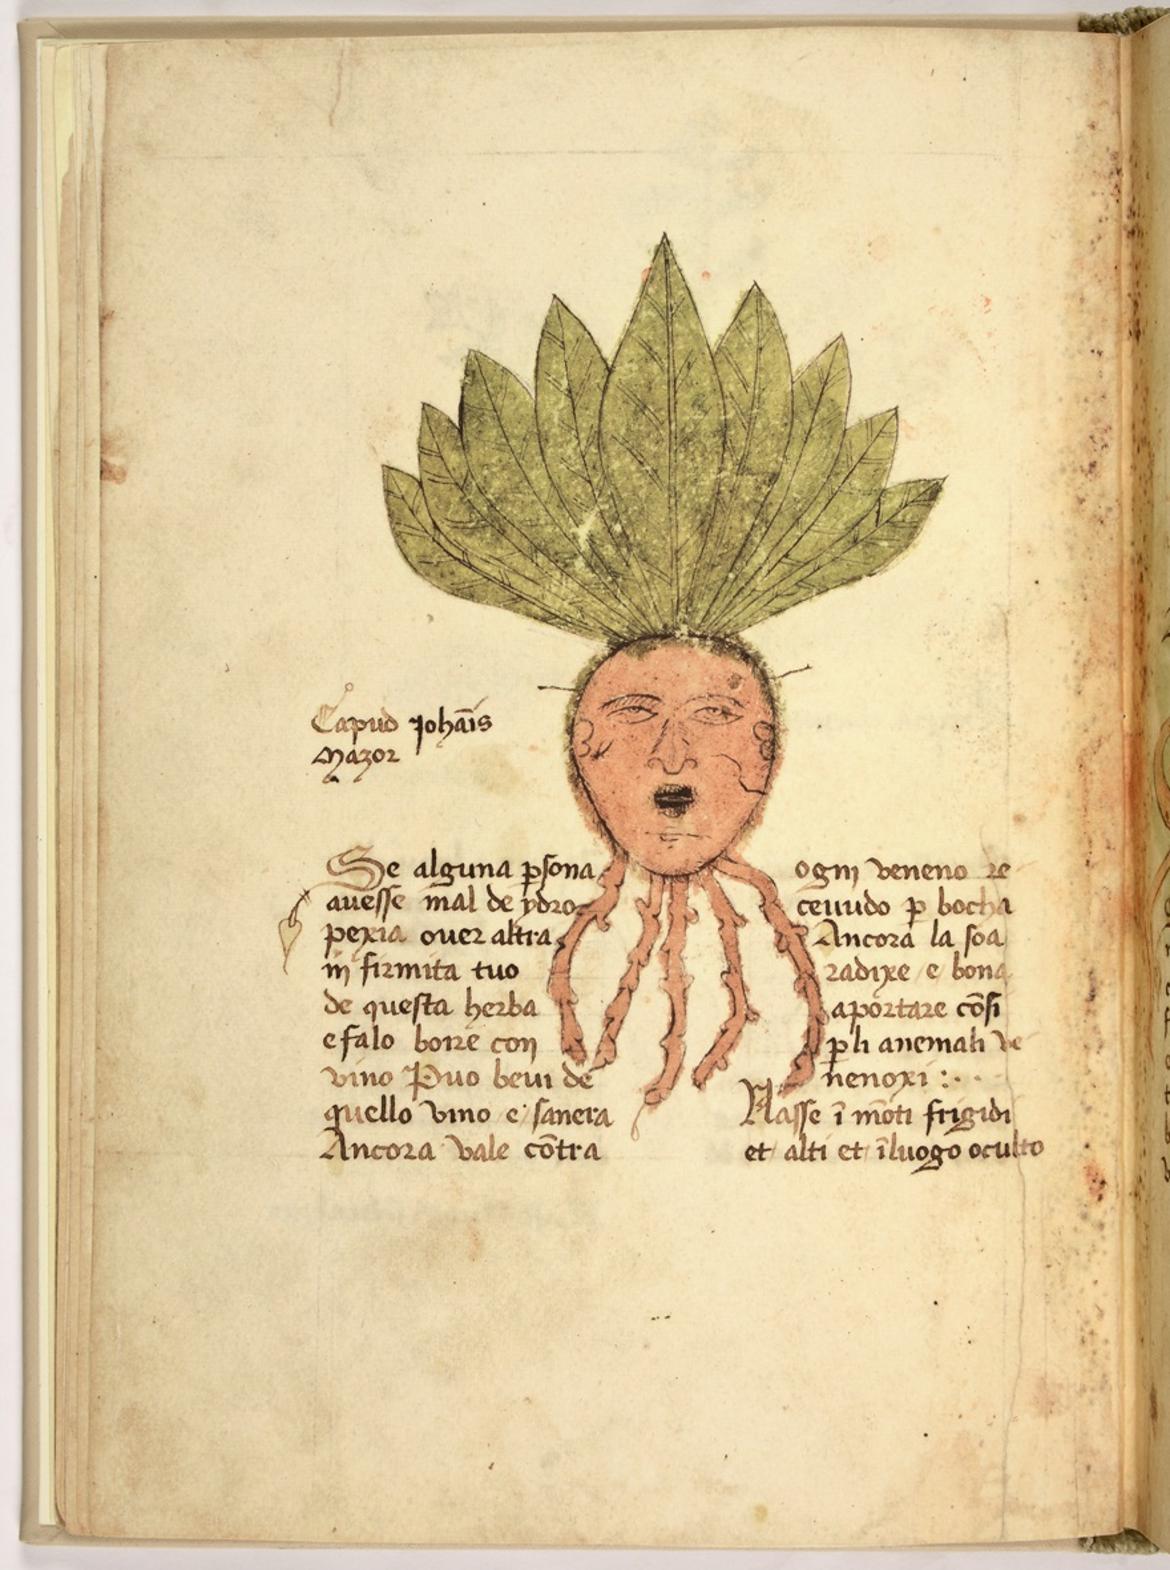 Capud Johāis
Mazor
Se alguna ꝑsona
auesse mal de ydro
pexia ouer altra
in firmita tuo
de questa herba
e falo boire con
vino Puo beui de
quello vino e sanera
Ancora vale cōtra
ogni veneno re
ceuudo ꝑ bocha
Ancora la soa
radixe e bona
aportare cōsi
ꝑ li anemali ve
nenoxi :· · ·
Nasse ī mōti frigidi
et alti et ī luogo oculto